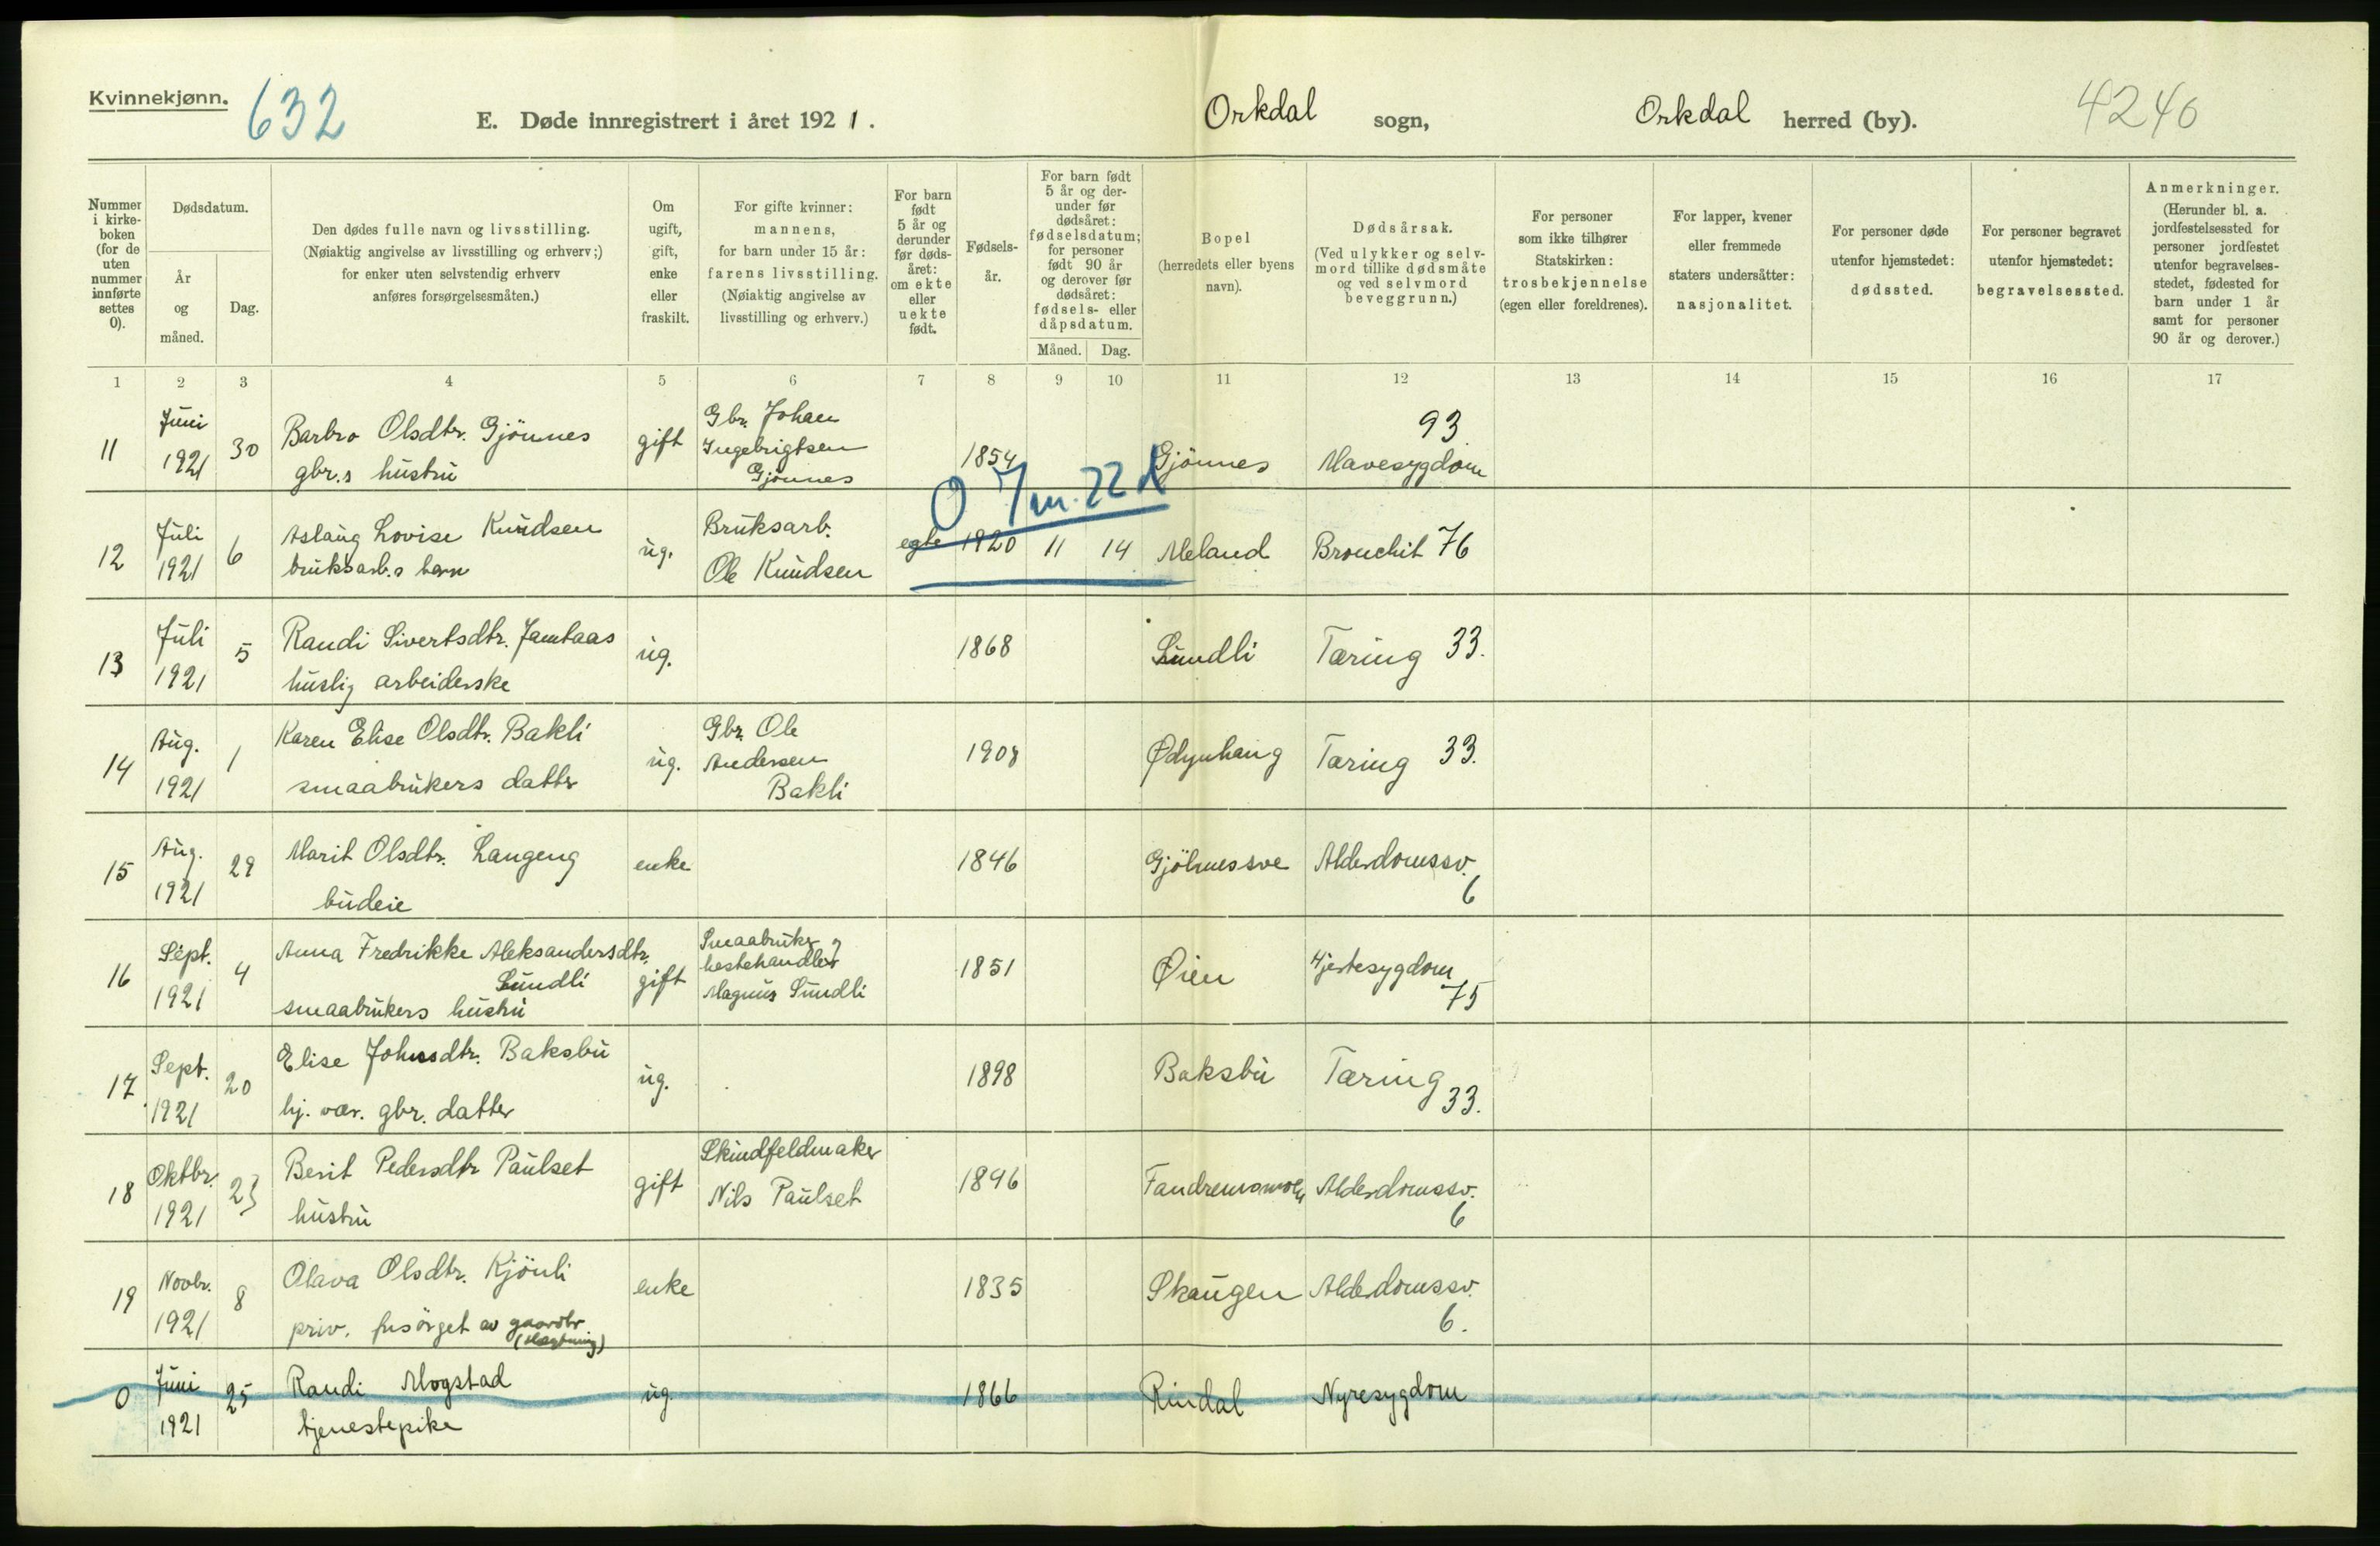 Kvinnekjønn.
632
E. Døde innregistrert i året 1921.
Orkdal sogn,
Orkdal herred (by).
4240
Nummer i kirke-boken (for de uten nummer innførte settes 0).
Dødsdatum.
År og måned.
Dag.
Den dødes fulle navn og livsstilling.
(Nøiaktig angivelse av livsstilling og erhverv;)
for enker uten selvstendig erhverv
anføres forsørgelsesmåten.)
Om ugift, gift, enke eller fraskilt.
For gifte kvinner:
mannens,
for barn under 15 år:
farens livsstilling.
(Nøiaktig angivelse av
livsstilling og erhverv.)
For barn født 5 år og derunder før døds-året: om ekte eller uekte født.
Fødsels-år.
For barn født 5 år og der-under før dødsåret: fødselsdatum; for personer født 90 år og derover før dødsåret: fødsels- eller dåpsdatum.
Måned. Dag.
Bopel
(herredets eller byens navn).
Dødsårsak.
(Ved ulykker og selv-mord tillike dødsmåte og ved selvmord beveggrunn.)
For personer som ikke tilhører Statskirken: trosbekjennelse (egen eller foreldrenes).
For lapper, kvener eller fremmede staters undersåtter: nasjonalitet.
For personer døde utenfor hjemstedet: dødssted.
For personer begravet utenfor hjemstedet: begravelsessted.
Anmerkninger.
(Herunder bl. a. jordfestelsessted for personer jordfestet utenfor begravelses-stedet, fødested for barn under 1 år samt for personer 90 år og derover.)
1 2 3 4 5 6 7 8 9 10 11 12 13 14 15 16 17
11 Juni 1921 30 Barbro Olsdtr. Gjönnes gbr.s hustru gift Gbr. Johan Ingebrigtsen Gjönnes 1854 Gjönnes 93 Mavesygdom
0 7 m. 22 d
12 Juli 1921 6 Aslaug Lovise Knudsen bruksarb.s barn ug. Bruksarb. Ole Knudsen egte 1920 11 14 Meland Bronchit 76
13 Juli 1921 5 Randi Sivertsdtr. Jamtaas huslig arbeiderske ug. 1868 Sundli Tæring 33.
14 Aug. 1921 1 Karen Elise Olsdtr. Bakli smaabrukers datter ug. Gbr. Ole Andersen Bakli 1908 Tæring 33.
15 Aug. 1921 29 Marit Olsdtr. Langeng budeie enke 1846 Alderdomssv. 6
16 Sept. 1921 4 Anna Fredrikke Aleksandersdtr. Sundli smaabrukers hustru gift Smaabruker og hestehandler Magnus Sundli 1851 Øien Hjertesygdom 75
17 Sept. 1921 20 Elise Johnsdtr. Baksbu hj. vær. gbr. datter ug. 1898 Baksbu Tæring 33.
18 Oktbr. 1921 23 Berit Pedersdtr Paulset hustru gift Skindfeldmaker Nils Paulset 1846 Fandremsmoen Alderdomssv. 6
19 Novbr. 1921 8 Olava Olsdtr. Kjönli priv. forsörget av gaardbr. enke 1835 Skaugen Alderdomssv. 6.
0 Juni 1921 25 Randi Mogstad tjenestepike ug. 1866 Rindal Nyresygdom